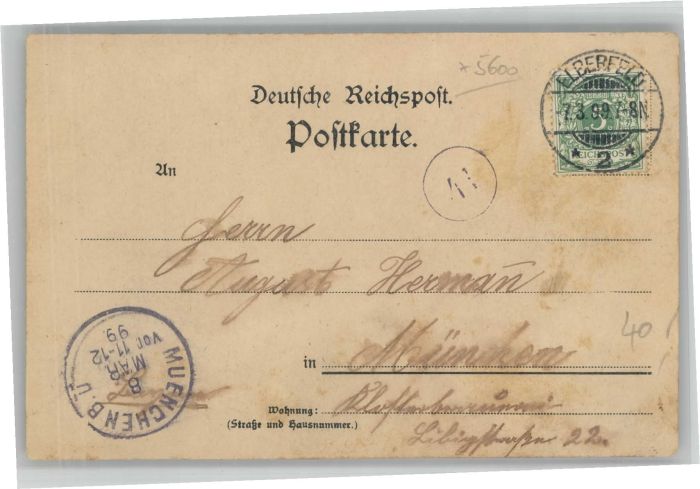 *5600
Deutsche Reichspost.
Postkarte.
ELBERFELD
7.3.99.7-8N
* 2 *
5
REICHSPOST
An
41
Herrn
August Hermañ
40
in München
MUENCHEN B.Ü.
8
MAR
Vor. 11-12
99
Wohnung:
(Straße und Hausnummer.)
Libigstraße 22